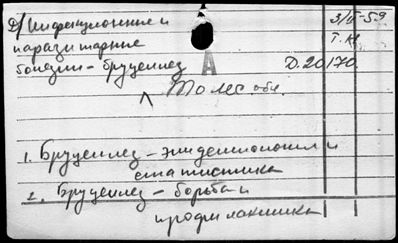 Д/ Инфекционные и
паразитарные
болезни - бруцеллез
3/II-59
Т. А.
Д. 20170.
А
То же обл.
1. Бруцеллез - эпидемиология и
статистика
2. Бруцеллез - борьба и
профилактика